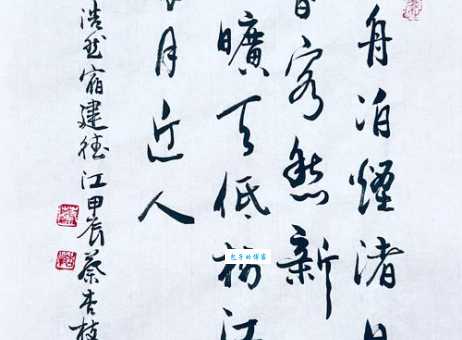 舟泊煙渚日
客愁新
曠天低樹江
月近人
浩然宿建德江甲辰蔡杏枝